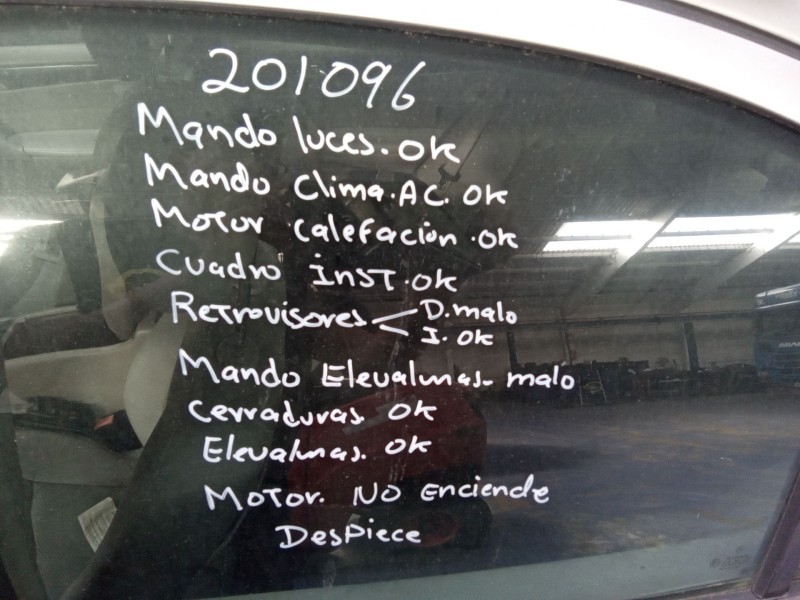 201096
Mando luces. OK
Mando Clima. AC. OK
Motor Calefacion. OK
Cuadro INST. OK
Retrovisores D. malo
I. OK
Mando Elevalunas. malo
Cerraduras. OK
Elevalunas. OK
Motor. NO Enciende
Despiece